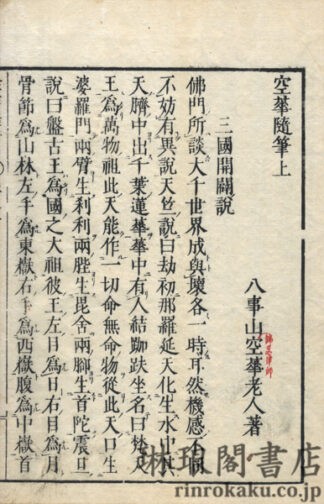 空華隨筆上
八事山空華老人著
諦忍律師
三國開闢說
佛門所談大千世界成與壞各一時耳然機感不同
不妨有異說天竺一說曰劫初那羅延天化生水中其
天臍中出千葉蓮華華中有人結跏趺坐名曰梵天
王爲萬物祖此天能作一切命無命物從此天口生
婆羅門兩臂生刹利兩胜生毘舍兩腳生首陀震旦
說曰盤古王爲國之大祖彼王左目爲日右目爲月
骨節爲山林左手爲東嶽右手爲西嶽腹爲中嶽首
琳琅閣書店
rinrokaku.co.jp